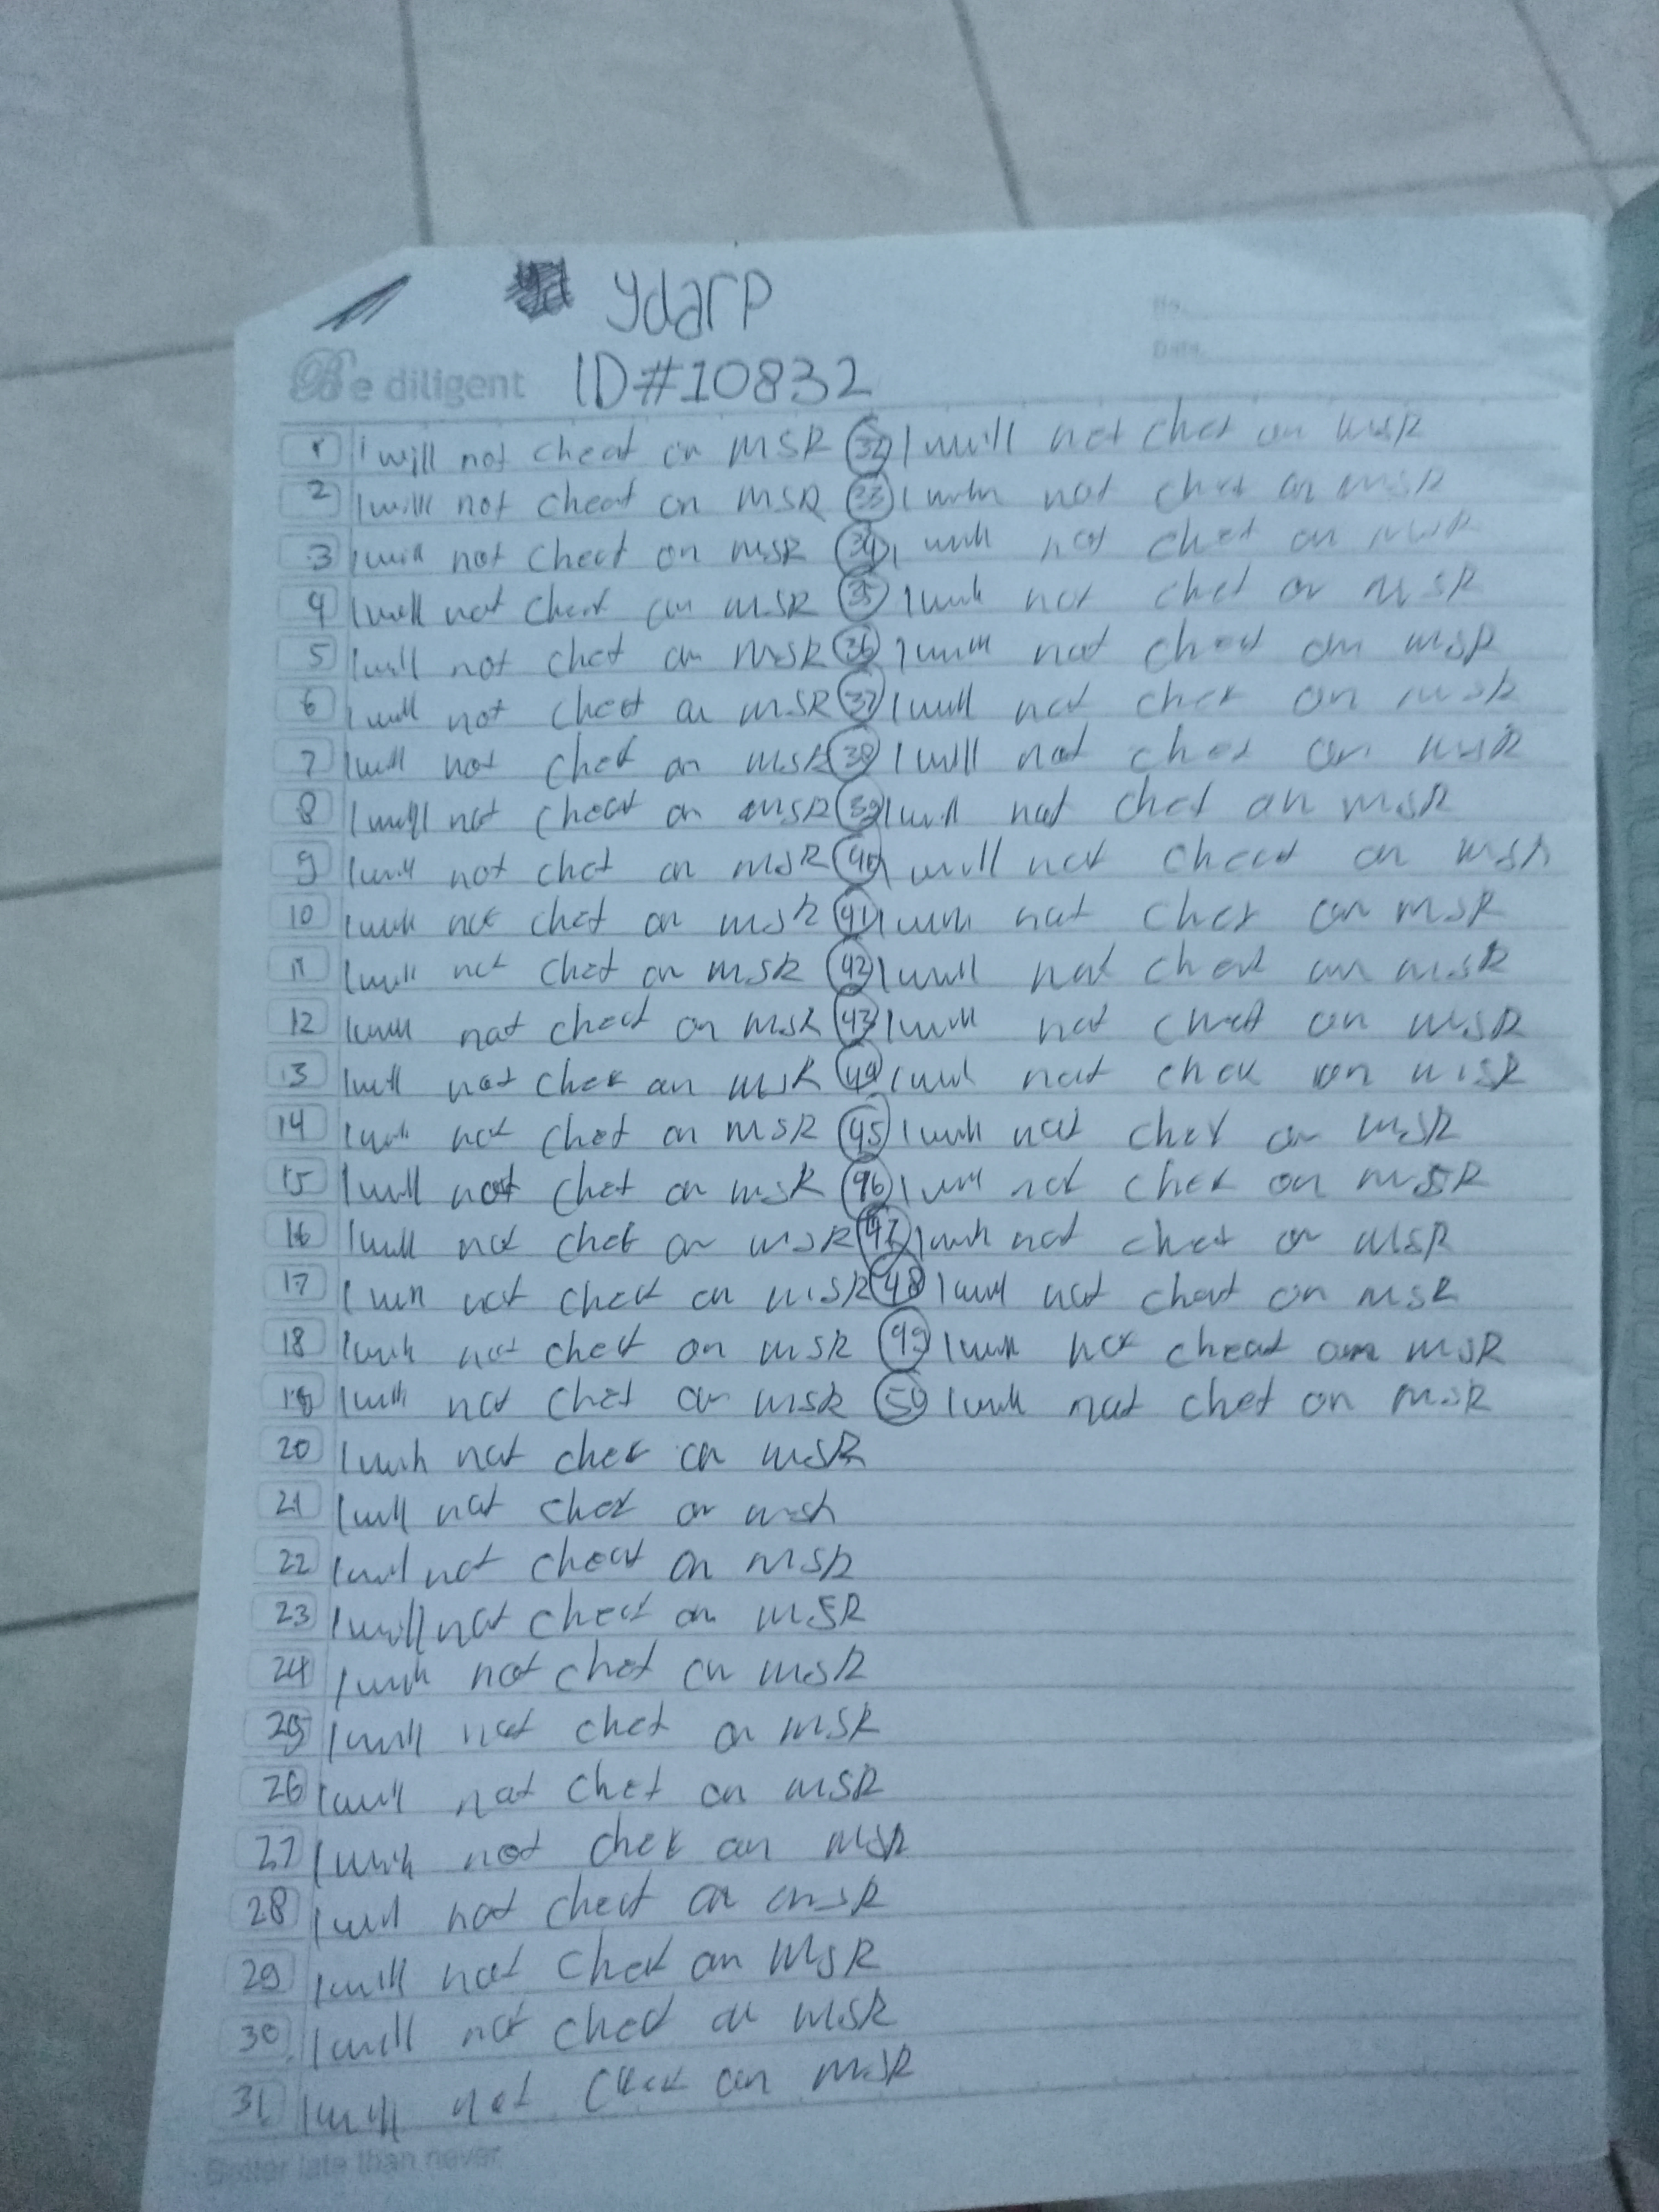 ydarp
No.
Date.
Be diligent ID#10832
1 I will not cheat on MSR 32 I will not chet on MSR
2 I will not cheat on MSR 33 I will not chet on MSR
3 I will not cheat on MSR 34 I will not chet on MSR
4 I will not cheat on MSR 35 I will not chet on MSR
5 I will not chet on MSR 36 I will not cheat on MSR
6 I will not cheat on MSR 37 I will not chet on MSR
7 I will not chet on MSR 38 I will not chet on MSR
8 I will not cheat on MSR 39 I will not chet on MSR
9 I will not chet on MSR 40 I will not cheat on MSR
10 I will not chet on MSR 41 I will not chet on MSR
11 I will not chet on MSR 42 I will not cheat on MSR
12 I will not cheat on MSR 43 I will not cheat on MSR
13 I will not chet on MSR 44 I will not chet on MSR
14 I will not chet on MSR 45 I will not chet on MSR
15 I will not chet on MSR 46 I will not chet on MSR
16 I will not chet on MSR 47 I will not chet on MSR
17 I will not chet on MSR 48 I will not cheat on MSR
18 I will not chet on MSR 49 I will not cheat on MSR
19 I will not chet on MSR 50 I will not chet on MSR
20 I will not chet on MSR
21 I will not chet on MSR
22 I will not cheat on MSR
23 I will not cheat on MSR
24 I will not chet on MSR
25 I will not chet on MSR
26 I will not chet on MSR
27 I will not chet on MSR
28 I will not cheat on MSR
29 I will not chet on MSR
30 I will not chet on MSR
31 I will not chet on MSR
Better late than never